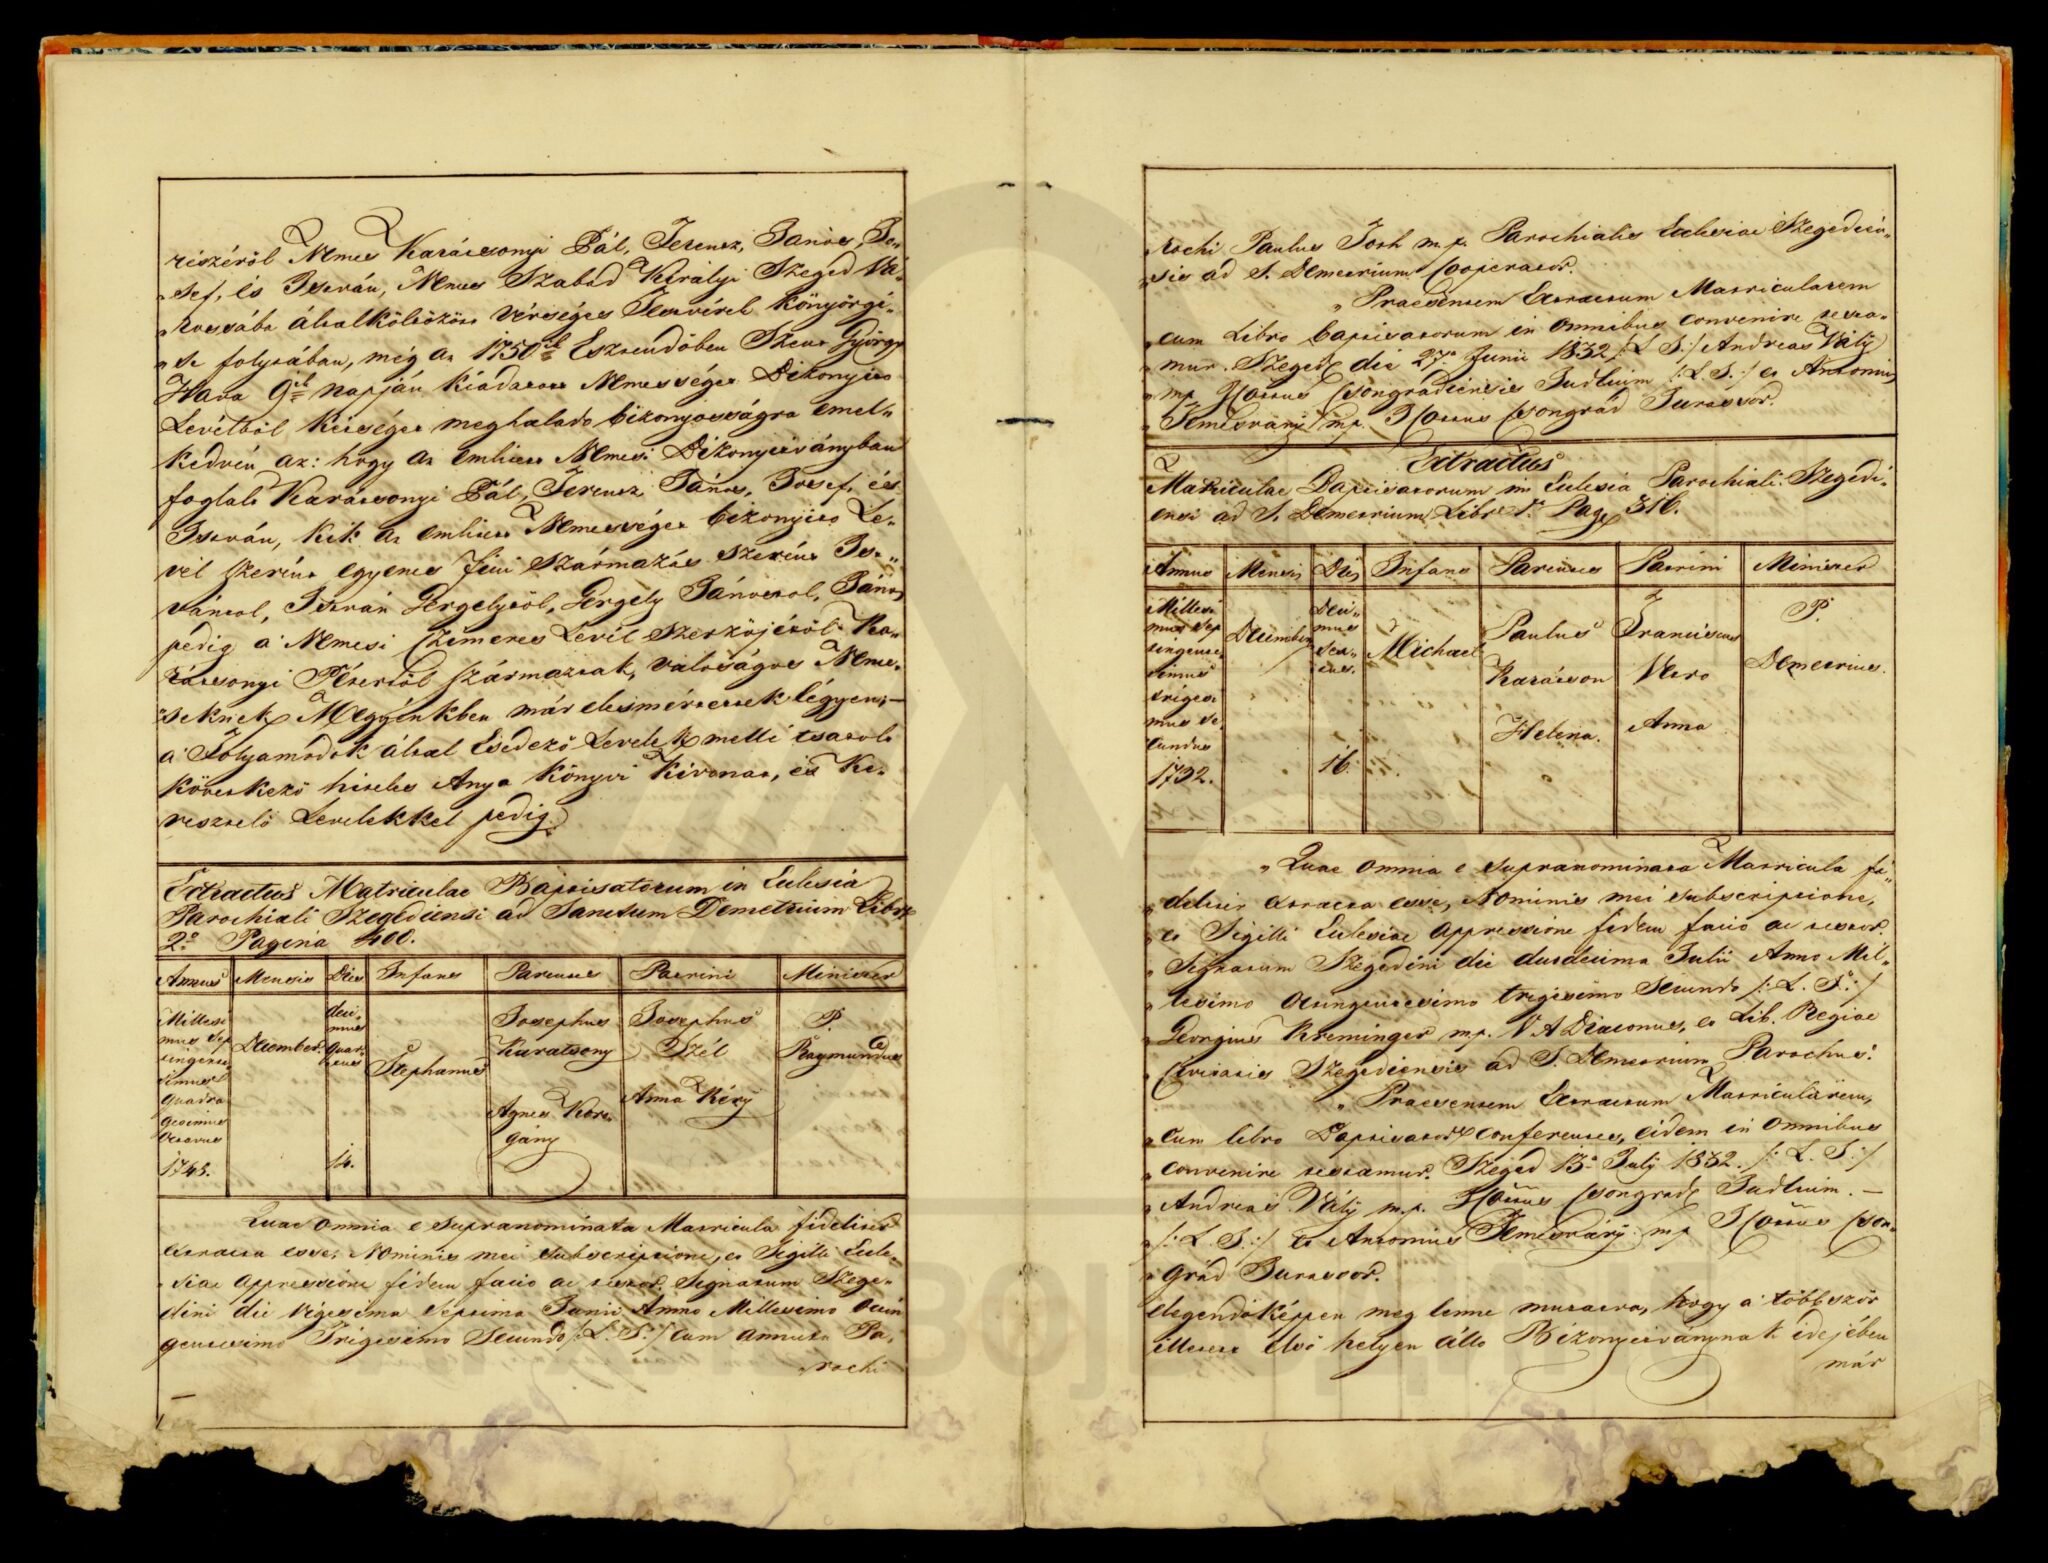 részéröl Nemes Karácsonyi Pál, Ferencz, János, Jo„
„sef, és István, Nemes Szabad Királyi Szeged Vá„
„rossába által költözött vérséges Testvérek könyörgé„
„se folytában, még az 1750ik Esztendöben Szent György
Hava 9ik napján kiadatott Nemességet Bizonyitó
Levélböl kétséget meghalado bizonyosságra emel„
kedvén az: hogy az emlitett Nemesi Bizonyitványban
foglalt Karácsonyi Pál, Ferencz, János, Josef, és
István, kik az emlitett Nemességet bizonyitó Le„
vél szerént egyenes fiui származás szerént Ist„
vántol, István Gergelytöl, Gergely Jánostol, János
pedig a' Nemesi Czimeres Levél szerzöjétöl Ka„
rácsonyi Pétertöl származtak, valóságos Neme„
„seknek Megyénkben már elesmértettek légyen; —
a' Folyamodok által Esedezö Levelek mellé tsatolt
következö hiteles Anya könyvi Kivonat, és Ke„
resztelö Levelekkel pedig
Extractus Matriculae Baptisatorum in Eclesia
Parochiali Szegediensi ad Sanctum Demetrium Libro
2o Pagina 400.
Annus Mensis Dies Infans Parentes Patrini Minister
Millesi deci„ Josephus Josephus P.
mus Sep mus Karatsony Szél Raymundus
tingente„ December. quar„ Stephanus
simus tus
quadra Agnes Kore„ Anna Kéry
gesimus gány
octavus
1748. 14.
Quae omnia e supranominata Matricula fideliter
extracta esse, Nominis mei subscriptione, et Sigilli Ecle„
„siae appressione fidem facio ac testor. Signatum Szege„
dini die vigesima septima Junii Anno Millesimo Octin
gentesimo Trigesimo Secundo /: L. S. :/ cum annutu Pa„
„rochi
„rochi Paulus Tóth m.p. Parochialis Eclesiae Szegedien„
„sis ad S. Demetrium Cooperator.
„Praesentem Extractum Matricularem
„cum Libro baptisatorum in omnibus convenire testa„
„mur. Szeged die 27a Junii 1832 /: L. S. :/ Andreas Vály
„mp. I. Cottus Csongrádiensis Judlium /: L. S. :/ et Antonius
„Temesváry mp. I. Cottus Csongrád Jurassor.
Extractus
Matriculae Baptisatorum in Eclesia Parochiali Szegedi„
ensi ad S. Demetrium Libro 1o Pag. 316.
Annus Mensis Dies Infans Parentes Patrini Minister
Millesi Deci„ P.
mus Sep mus Paulus Franciscus
tingente„ December sex„ Michael Demetrius.
simus tus. Karácson Vero
trigesi
mus se„ Helena. Anna
cundus
1732. 16.
„Quae omnia e supranominata Matricula fi„
„deliter extracta esse, Nominis mei subscriptione,
„et Sigilli Eclesiae appressione fidem facio ac testor.
„Signatum Szegedini die duodecima Julii Anno Mil„
„lesimo Octingentesimo trigesimo Secundo /: L. S. :/
„Georgius Kreminger mp. V. A Diaconus, et Lib. Regiae
„Civitatis Szegediensis ad S. Demetrium Parochus.
„Praesentem Extractum Matricularem,
„cum libro Baptisator. conferentes, eidem in omnibus
„convenire testamur. Szeged 13a July 1832. /: L. S. :/
„Andreas Vály m.p. I. Cottus Csongrád Judlium. —
„/: L. S. :/ et Antonius Temesváry mp I. Cottus Cson„
„grád Jurassor.
elegendöképpen meg lenne mutatva, hogy a' többször
illetett elsö helyen álló Bizonyitványnak idejében
már